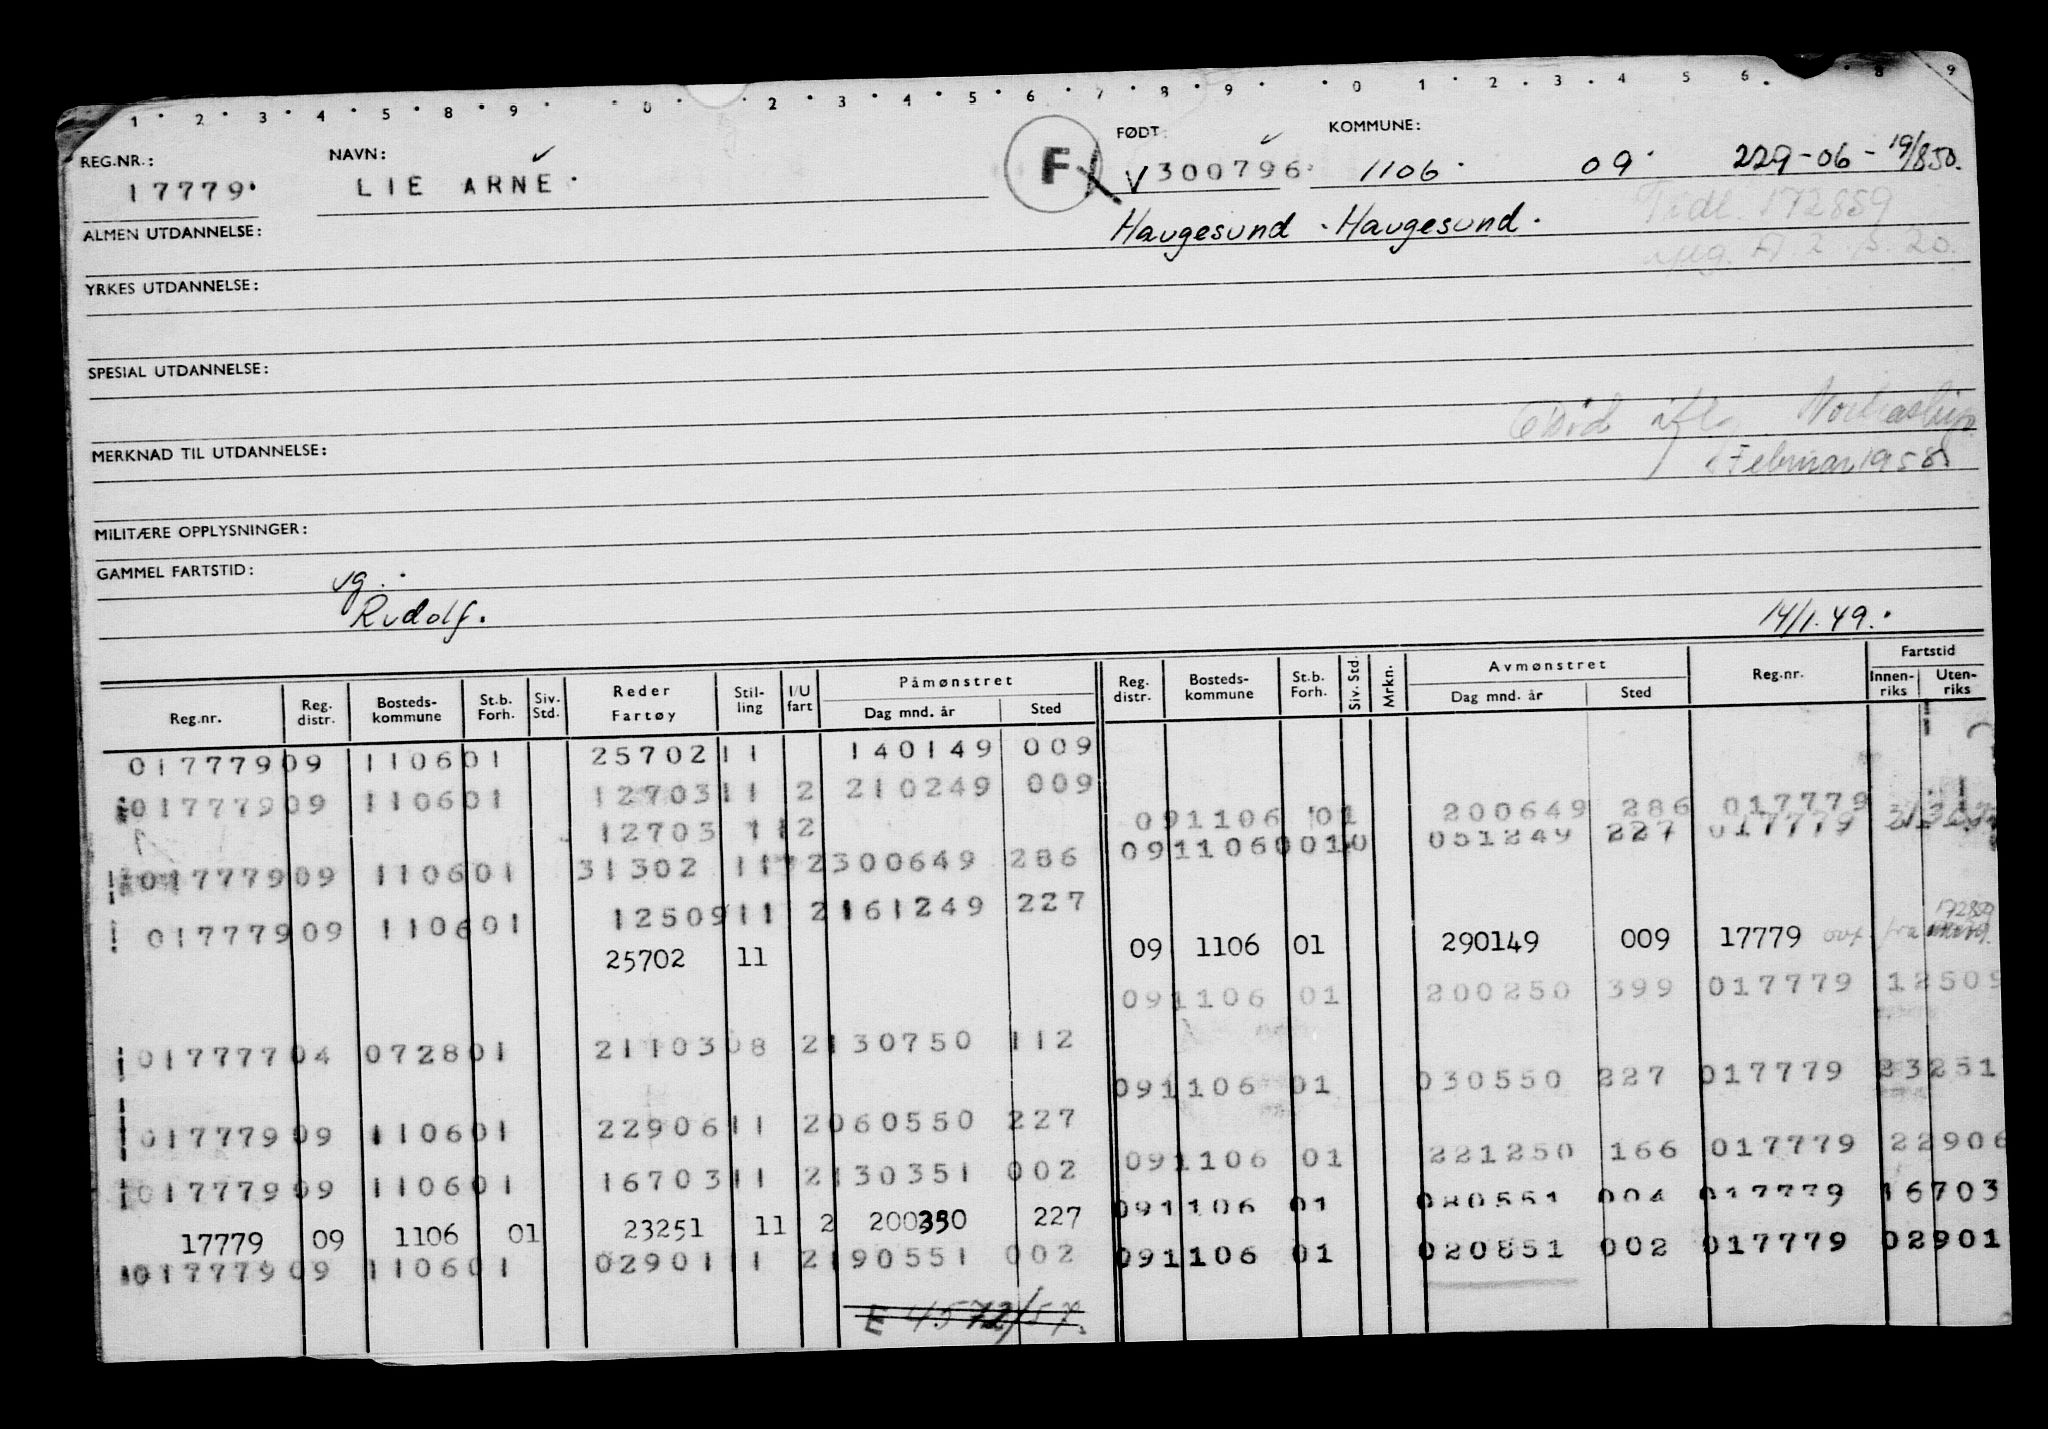 1 · 2 · 3 · 4 · 5 · 8 · 9 · 0 · 2 · 3 · 4 · 5 · 6 · 7 · 8 · 9 · 0 1 · 2 · 3 · 4 5 6 · 8 9
REG.NR.: NAVN: FØDT: KOMMUNE:
17779. LIE ARNE. F V 300796. 1106. 09. 229-06- 19/850.
ALMEN UTDANNELSE: Haugesund . Haugesund . Tidl. 172859
A. 2 s. 20.
YRKES UTDANNELSE:
SPESIAL UTDANNELSE:
Død iflg Nortraship
MERKNAD TIL UTDANNELSE: Februar 1958
MILITÆRE OPPLYSNINGER:
GAMMEL FARTSTID: vg.
Rudolf. 14/1.49.
Reg.nr. Reg. distr. Bosteds- kommune St.b. Forh. Siv. Std. Reder Fartøy Stil- ling I/U fart Påmønstret Dag mnd. år Sted Reg. distr. Bosteds- kommune St.b. Forh. Siv. Std. Mrkn. Avmønstret Dag mnd. år Sted Reg.nr. Fartstid Innen- riks Uten- riks
017779 09 1106 01 25702 11 140149 009
017779 09 1106 01 12703 11 2 210249 009
09 1106 01 200649 286 017779
12703 11 2
09 1106 051249 227 017779
017779 09 1106 01 31302 11 2 300649 286
017779 09 1106 01 12509 11 2 161249 227
25702 11 09 1106 01 290149 009 17779 ovf fra 172859
09 1106 01 200250 399 017779 12509
017777 04 0728 01 21103 08 2 130750 112
09 1106 01 030550 227 017779 23251
017779 09 1106 01 22906 11 2 060550 227
09 1106 01 221250 166 017779 22906
017779 09 1106 01 16703 11 2 130351 002
09 1106 01 080551 004 017779 16703
17779 09 1106 01 23251 11 2 200350 227
09 1106 01 020851 002 017779 02901
017779 09 1106 01 02901 11 2 190551 002
E 4572/57.